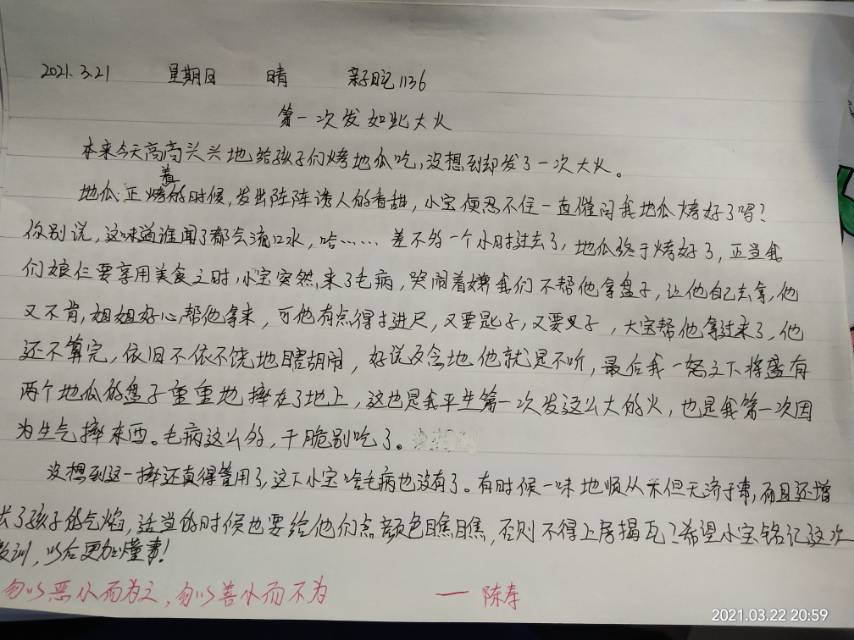 2021.3.21 星期日 晴 亲子日记1136
第一次发如此大火
本来今天高高兴兴地给孩子们烤地瓜吃,没想到却发了一次大火。
地瓜正烤着的时候,发出阵阵诱人的香甜,小宝便忍不住一直催问我地瓜烤好了吗?
你别说,这味道谁闻了都会流口水,哈……差不多一个小时过去了,地瓜终于烤好了,正当我
们娘仨要享用美食之时,小宝突然来了毛病,哭闹着嫌我们不帮他拿盘子,让他自己去拿,他
又不肯,姐姐好心帮他拿来,可他有点得寸进尺,又要匙子,又要叉子,大宝帮他拿过来了,他
还不算完,依旧不依不饶地瞎胡闹,好说歹念地他就是不听,最后我一怒之下将盛有
两个地瓜的盘子重重地摔在了地上,这也是我平生第一次发这么大的火,也是我第一次因
为生气摔东西。毛病这么多,干脆别吃了。
没想到这一摔还真得管用了,这下小宝啥毛病也没有了。有时候一味地顺从不但无济于事,而且还增
长了孩子的气焰,适当的时候也要给他们点颜色瞧瞧,否则不得上房揭瓦?希望小宝铭记这次
教训,以后更加懂事!
勿以恶小而为之,勿以善小而不为 — 陈寿
2021.03.22 20:59